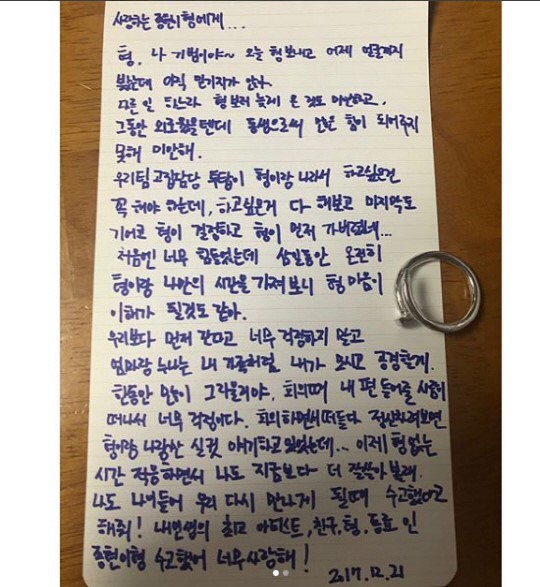 사랑하는 종현이형에게...
형. 나 기범이야~ 오늘 형 보내고 어제 얼굴까지
봤는데 아직 믿기지가 않아.
다른 일 하느라 형 보러 늦게 온 것도 미안하고,
그동안 외로웠을텐데 동생으로써 많은 힘이 되어주지
못해 미안해.
우리팀 고집담당 투탑이 형이랑 나라서 하고싶은건
꼭 해야 하는데, 하고싶은거 다 해보고 마지막도
기어코 형이 결정하고 형이 먼저 가버렸네...
처음엔 너무 힘들었는데 삼일동안 온전히
형이랑 나만의 시간을 가져보니 형 마음이
이해가 될것도 같아.
우리보다 먼저 간다고 너무 걱정하지 말고
엄마랑 누나는 내 가족처럼 내가 모시고 공경할게.
한동안 많이 그리울거야. 회의때 내 편 들어줄 사람이
떠나서 너무 걱정이다. 회의하면서 떠들다 정신차려보면
형이랑 나랑만 실컷 얘기하고 있었는데... 이제 형 없는
시간 적응하면서 나도 지금보다 더 잘살아 볼래.
나도 나이들어 우리 다시 만나게 될때 수고했다고
해줘! 내인생의 최고 아티스트, 친구, 형, 동료 인
종현이형 수고했어 너무사랑해!
2017.12.21